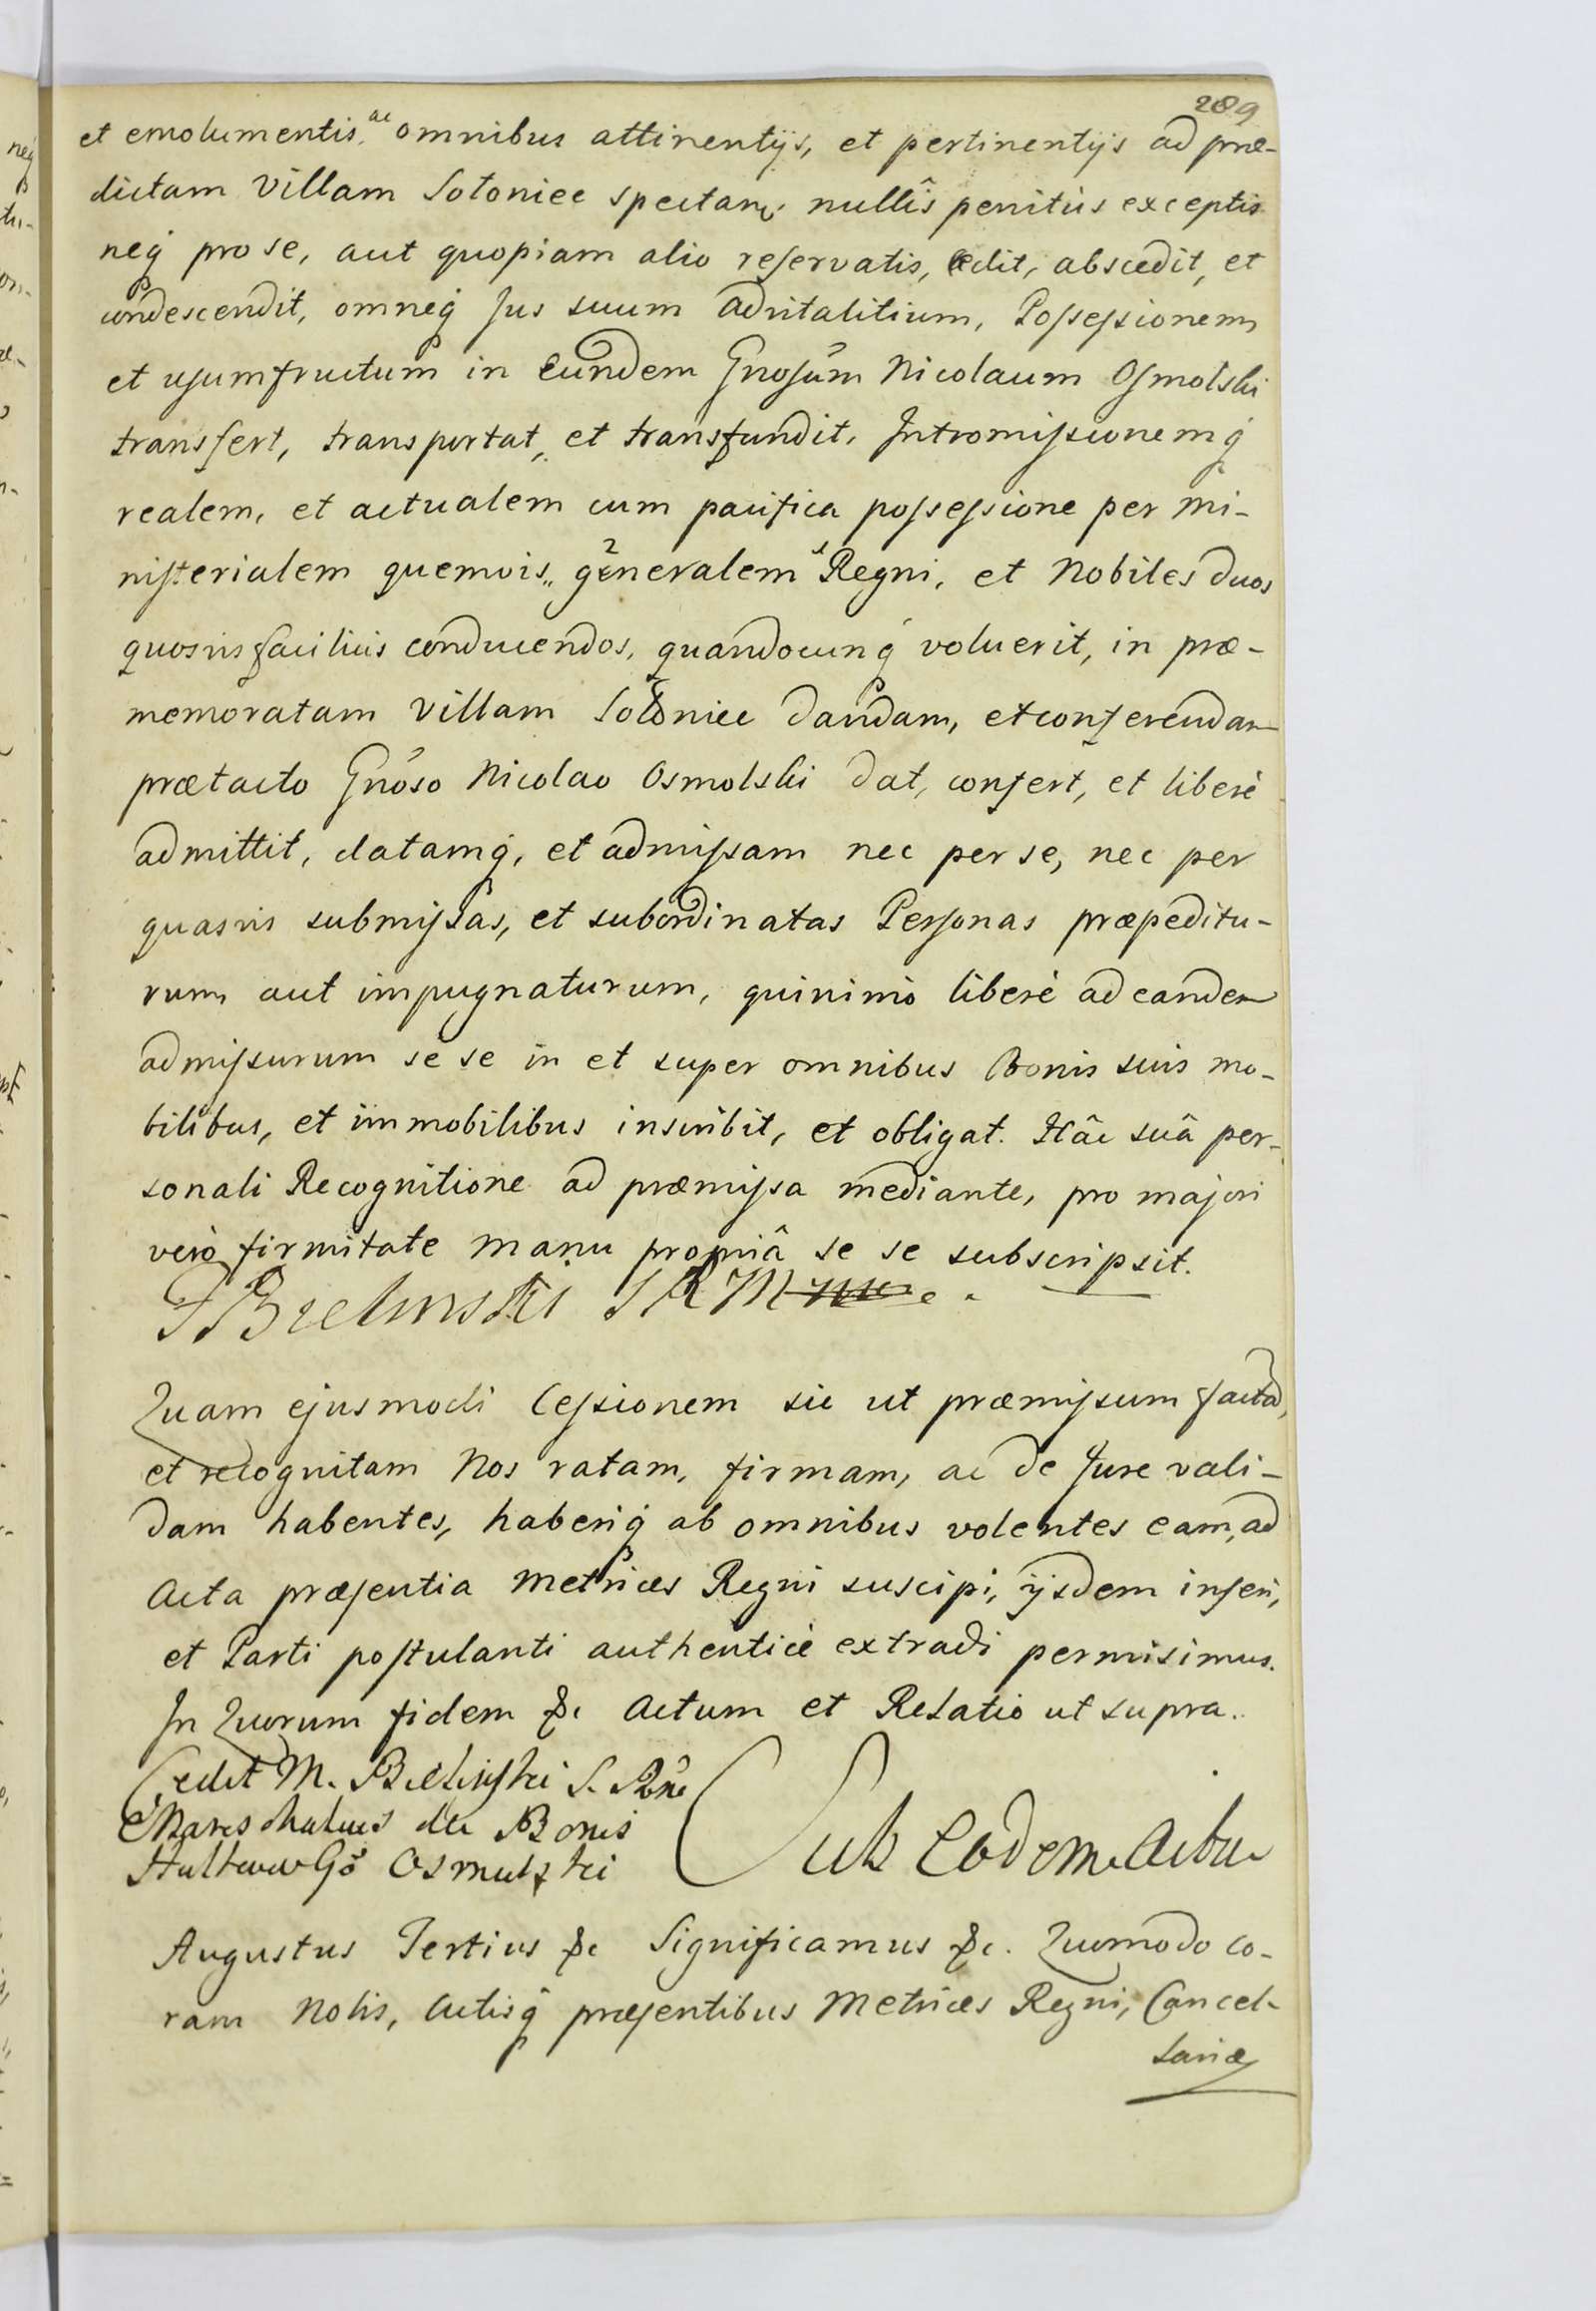 289
et emolumentis ac omnibus attinentijs, et pertinentijs ad præ-
dictam Villam Sotoniec spectan: nullîs penitùs exceptis
neq́ pro se, aut quopiam alio reservatis, cedit, abscedit, et
condescendit, omneq́ Jus suum advitalitium, Possessionem,
et usumfructum in Eundem Gnosum Nicolaum Osmolski
transfert, transportat, et transfundit. Intromissionemq́
realem, et actualem cum pacifica possessione per Mi-
nisterialem quemvis generalem Regni, et Nobiles duos
quosvis faciliùs conducendos, quandocunq́ voluerit, in præ-
memoratam Villam Sotoniec dandam, et conferendam
prætacto Gnoso Nicolao Osmolski dat, confert, et liberè
admittit, datamq́, et admissam nec per se, nec per
quasvis submissas, et subordinatas Personas præpeditu-
rum, aut impugnaturum, quinimò liberè ad eandem
admissurum se se in et super omnibus Bonis suis mo-
bilibus, et immobilibus inscribit, et obligat. Hâc suâ per-
sonali Recognitione ad præmissa mediante, pro majori
verò firmitate manu propriâ se se subscripsit.
Bielinski
Quam ejusmodi Cessionem sic ut præmissum facta,
et recognitam Nos ratam, firmam, ac de Jure vali-
dam habentes, haberiq́ ab omnibus volentes eam, ad
Acta præsentia Metrices Regni suscipi, ijsdem inseri,
et Parti postulanti authenticè extradi permisimus.
In Quorum fidem &c Actum et Relatio ut supra.
Cedit M. Bielinski S.
Mareschalcus de Bonis
Gō Osmulski
Sub Eodem Actu
Augustus Tertius &c Significamus &c. Quomodo co-
ram Nobis, Actisq́ præsentibus Metrices Regni, Cancel-
lariæ